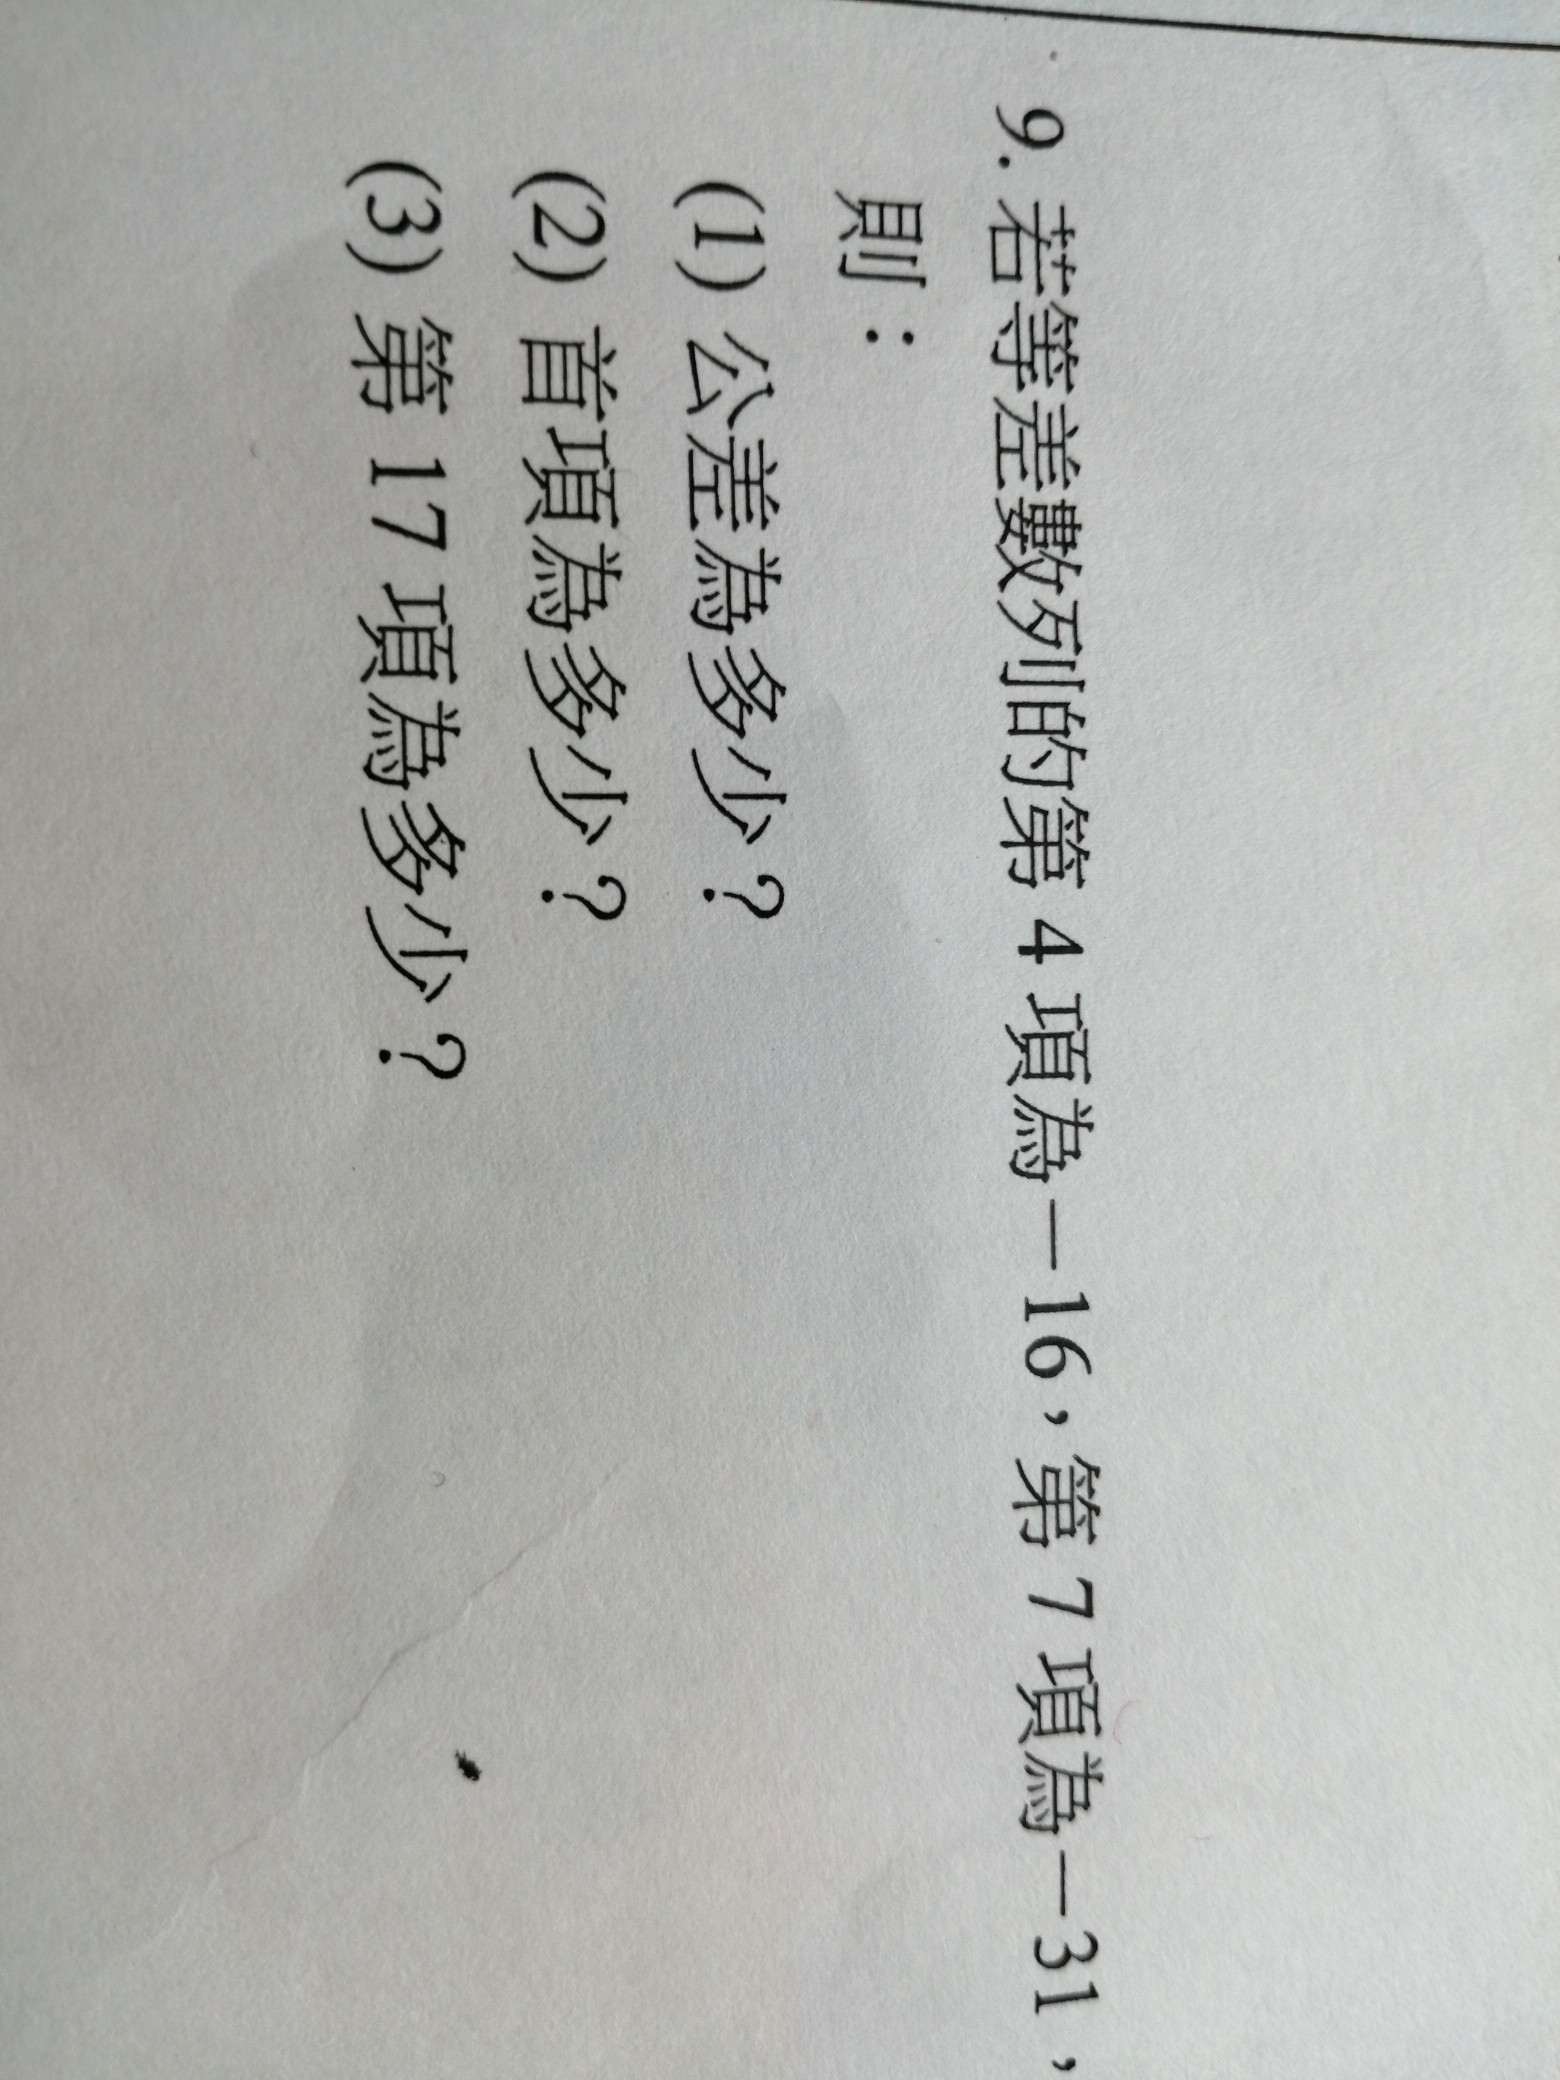 9. 若等差數列的第 4 項為－16，第 7 項為－31，
則：
(1) 公差為多少？
(2) 首項為多少？
(3) 第 17 項為多少？